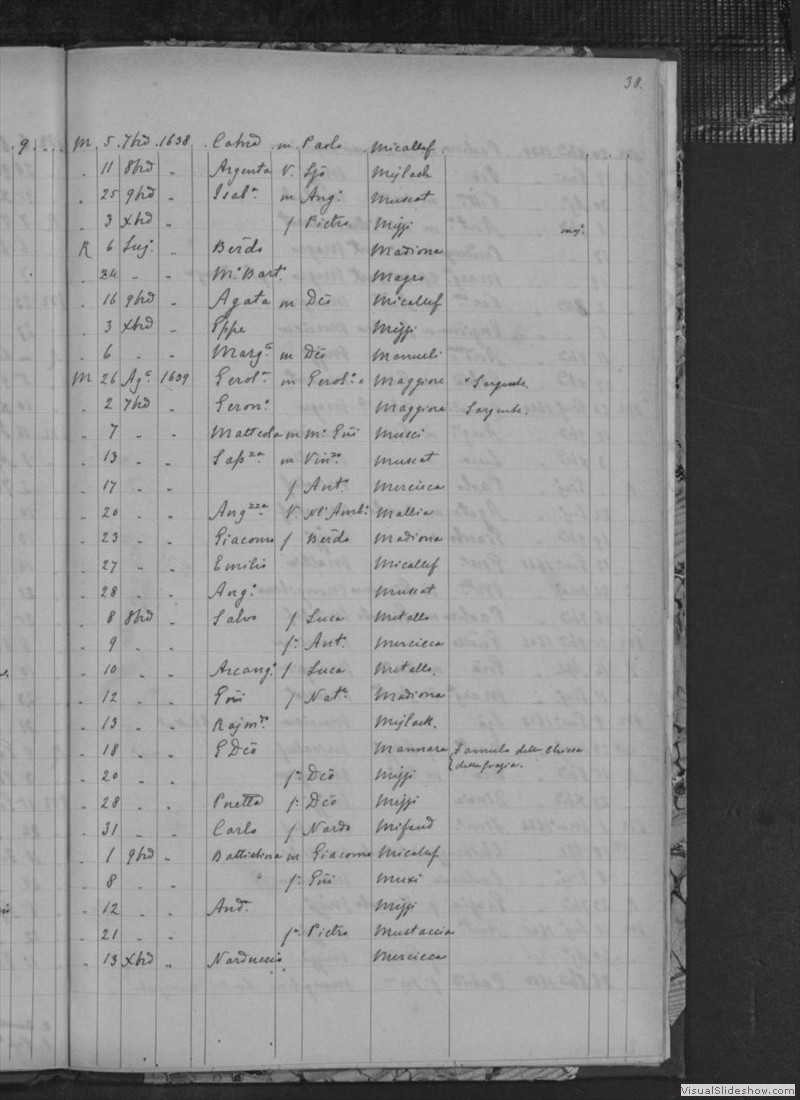 38.
9. M 5 7brd 1638 Catnd m Paolo Micallef
. 11 8brd " Argenta V. Sjo Mijlach
. 25 9brd " Isab.a m Ang.o Muscat
. 3 Xbrd " f Pietro Mijji
R 6 " Berdo Madiona
. 24 " " M.o Bart.o Magro
. 16 9brd " Agata m Dco Micallef
. 3 Xbrd " Eppe Mijji
. 6 " " Marg.a m Dco Manueli
M 26 Ag.o 1639 Gerol.a m Gerol.o Maggiore Sargente.
. 2 7brd " Geron.o Maggiore Sargente.
. 7 " " Matteola m M.o Gni Musci
. 13 " " m Vin.zo Muscat
. 17 " " f Ant.o Mercieca
. 20 " " V. Mallia
. 23 " " Giacomo f Berdo Madiona
. 27 " " Emilio Micallef
. 28 " " Ang.o Muscat
. 8 8brd " Salvo f Luca Metallo
. 9 " " f. Ant.o Mercieca
. 10 " " Arcang.o f Luca Metallo.
. 12 " " Gni f Nat.e Madiona
. 13 " " Rajm.do Mijlack.
. 18 " " G Dco Mannara famulo della Chiesa
della grazia.
. 20 " " f. Dco Mijji
. 28 " " Pnetta f. Dco Mijji
. 31 " " Carlo f Nardo Mifsud
. 1 9brd " Battistina m Giacomo Micallef
. 8 " " f. Gni Muxi
. 12 " " And.a Mijji
. 21 " " f. Pietro Mustaccia
. 13 Xbrd " Narduccio Mercieca
VisualSlideshow.com